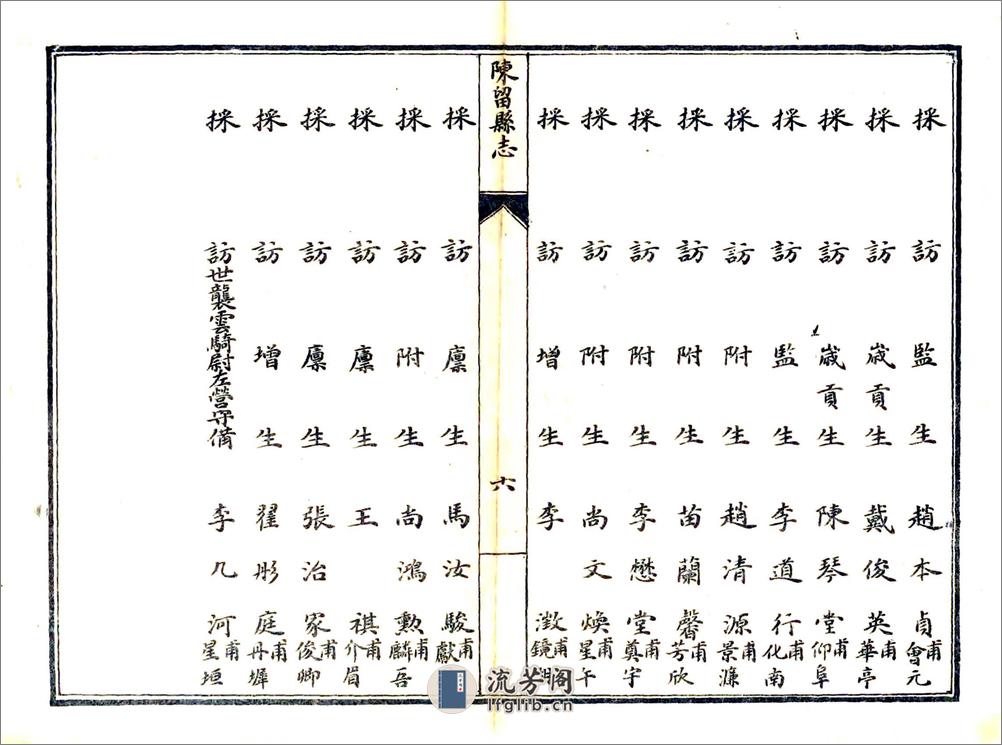 採訪監生趙本貞會元甫
採訪歲貢生戴俊英華亭甫
採訪歲貢生陳琴堂仰阜甫
採訪監生李道行化南甫
採訪附生趙清源景濂甫
採訪附生苗蘭馨芳欣甫
採訪附生李懋堂奠宇甫
採訪附生尚文煥星午甫
採訪增生李澂鏡湖甫
陳留縣志
六
採訪廩生馬汝駿獻甫
採訪附生尚鴻勲麟吾甫
採訪廩生王祺介眉甫
採訪廩生張治家俊卿甫
採訪增生翟彤庭丹墀甫
採訪世襲雲騎尉左營守備李九河星垣甫
流芳阁
lfglib.cn